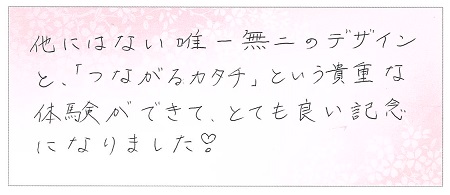 他にはない唯一無二のデザイン
と、「つながるカタチ」という貴重な
体験ができて、とても良い記念
になりました♡